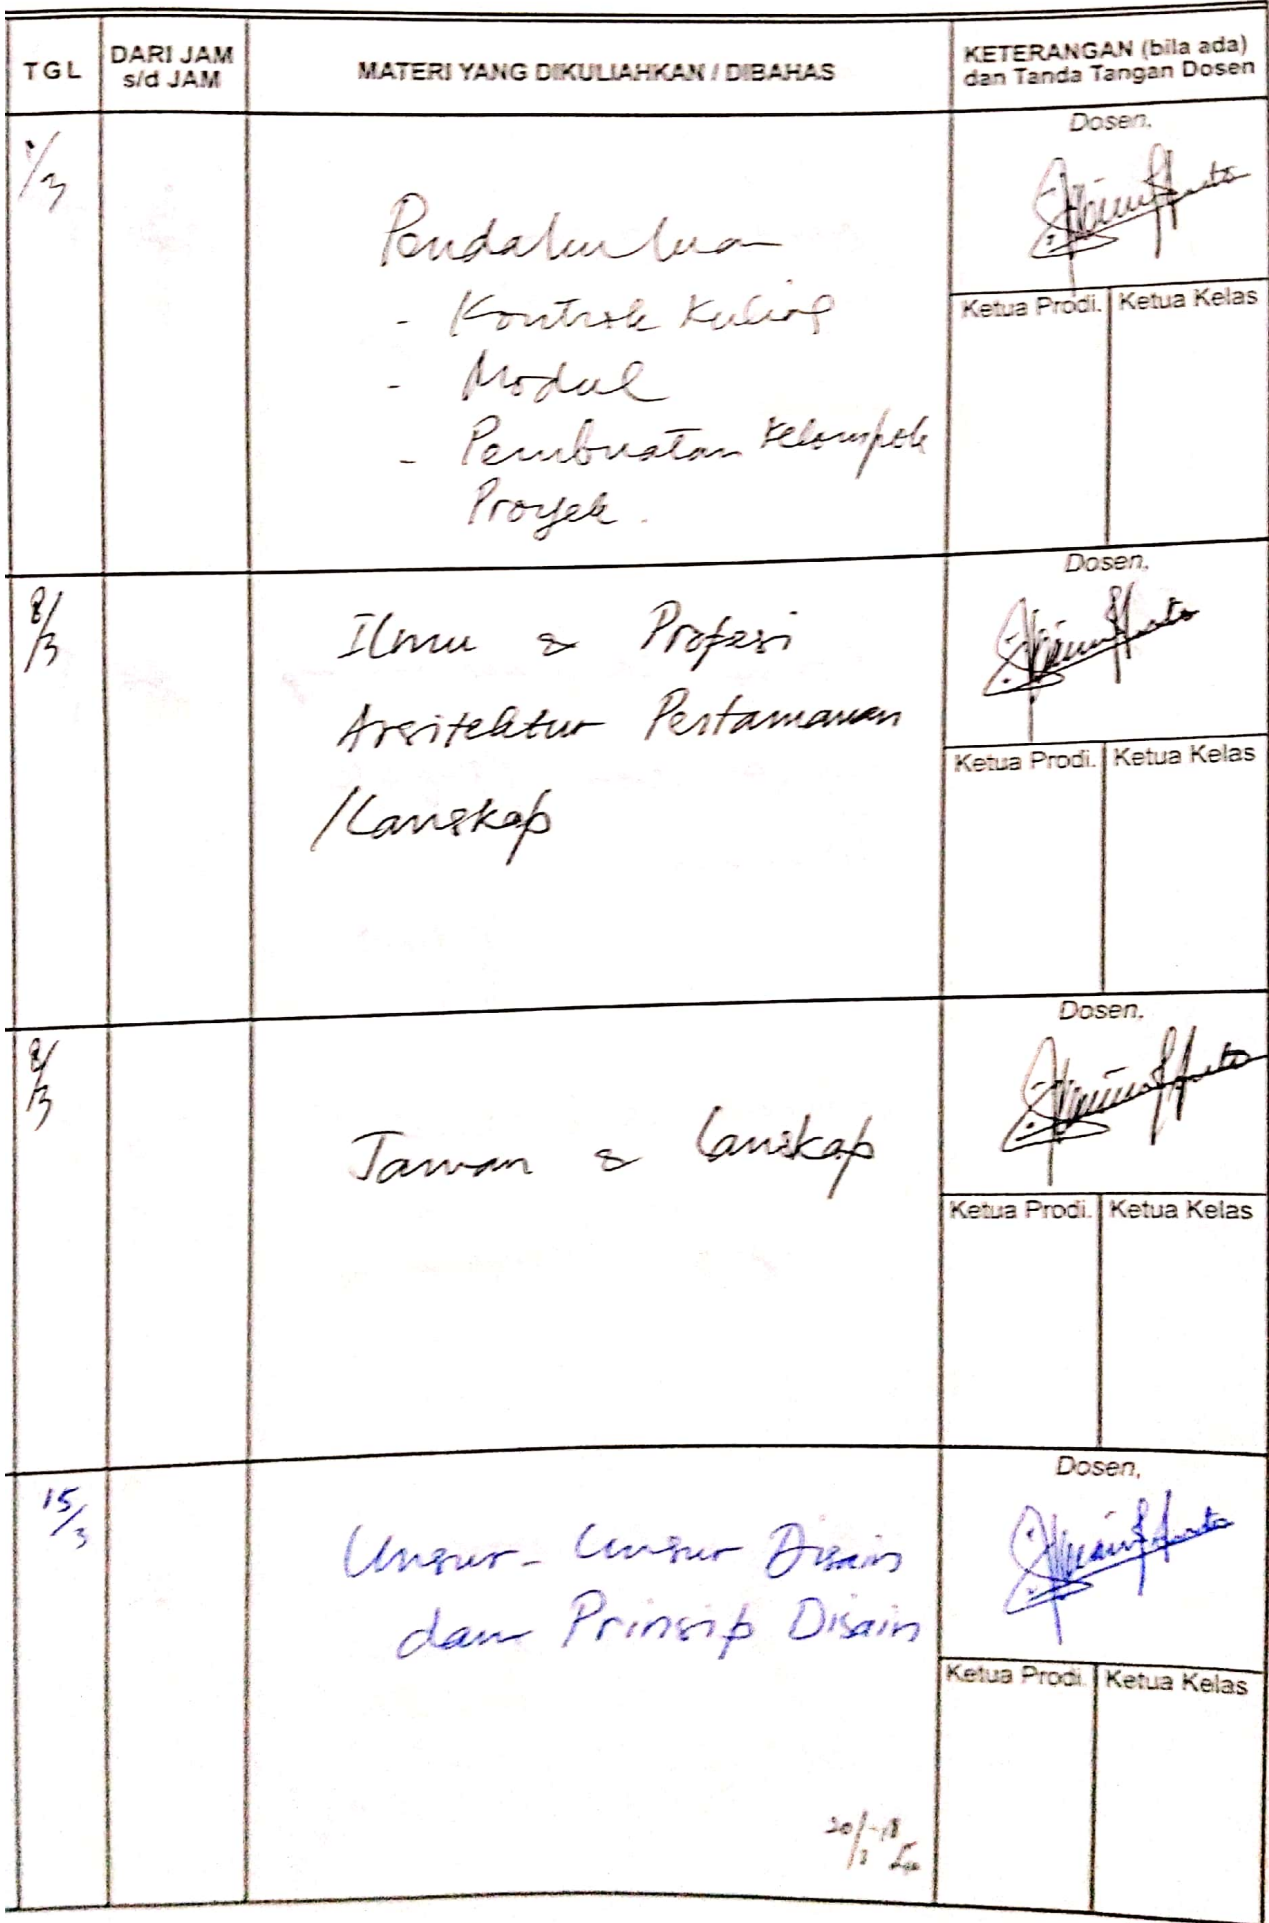 TGL
DARI JAM
s/d JAM
MATERI YANG DIKULIAHKAN / DIBAHAS
KETERANGAN (bila ada)
dan Tanda Tangan Dosen
1/3
Pendahuluan
- Kontrak Kuliah
- Modul
- Pembuatan Kelompok
Proyek.
Dosen,
Ketua Prodi. Ketua Kelas
8/3
Ilmu & Profesi
Arsitektur Pertamanan
/Lanskap
Dosen,
Ketua Prodi. Ketua Kelas
8/3
Taman & Lanskap
Dosen,
Ketua Prodi. Ketua Kelas
15/3
Unsur-Unsur Disain
dan Prinsip Disain
20/3-18
Dosen,
Ketua Prodi. Ketua Kelas